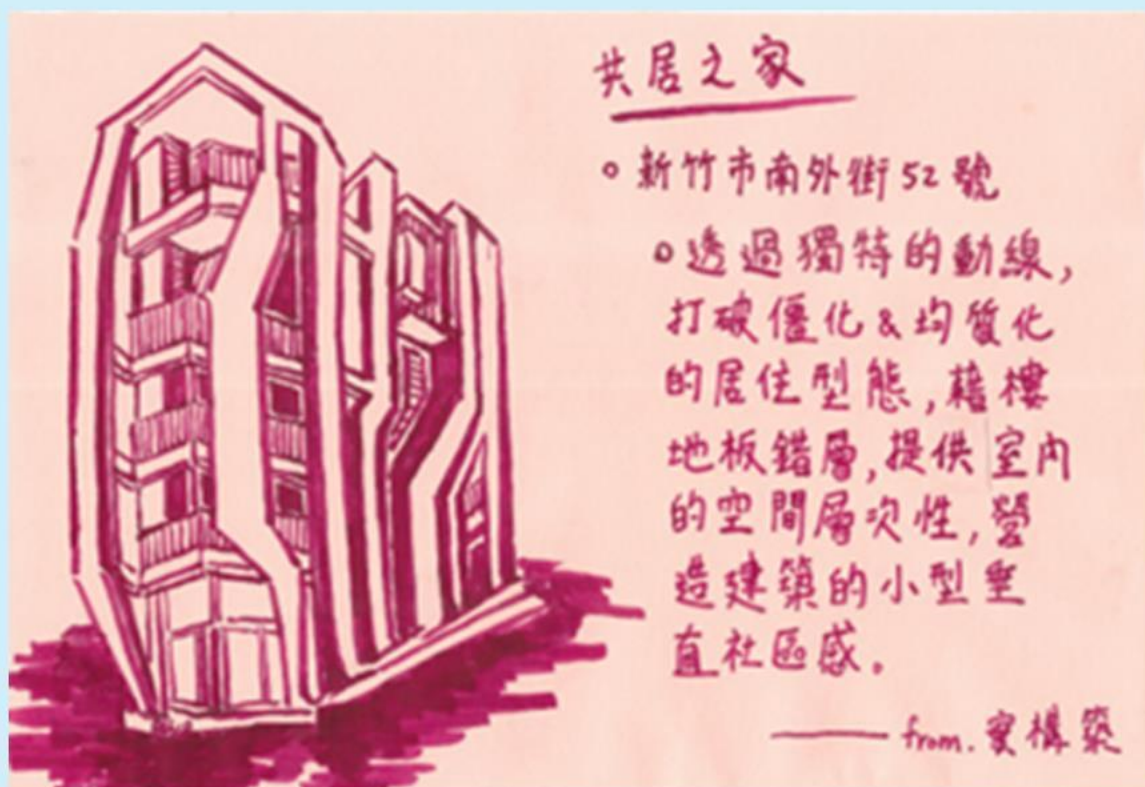 共居之家
。新竹市南外街52號
。透過獨特的動線,
打破僵化&均質化
的居住型態,藉樓
地板錯層,提供室內
的空間層次性,營
造建築的小型垂
直社區感。
——from.實構築